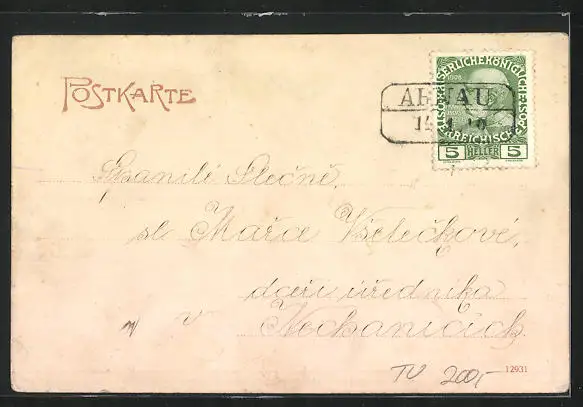 POSTKARTE
KAISERLICHE KÖNIGLICHE
1908
ÖSTERREICHISCHE POST
5 HELLER 5
ARNAU
Spanilé Slečně,
sl. Mařce Všetečkové,
dceři úředníka
v Nechanicích
TU 200,-
12931